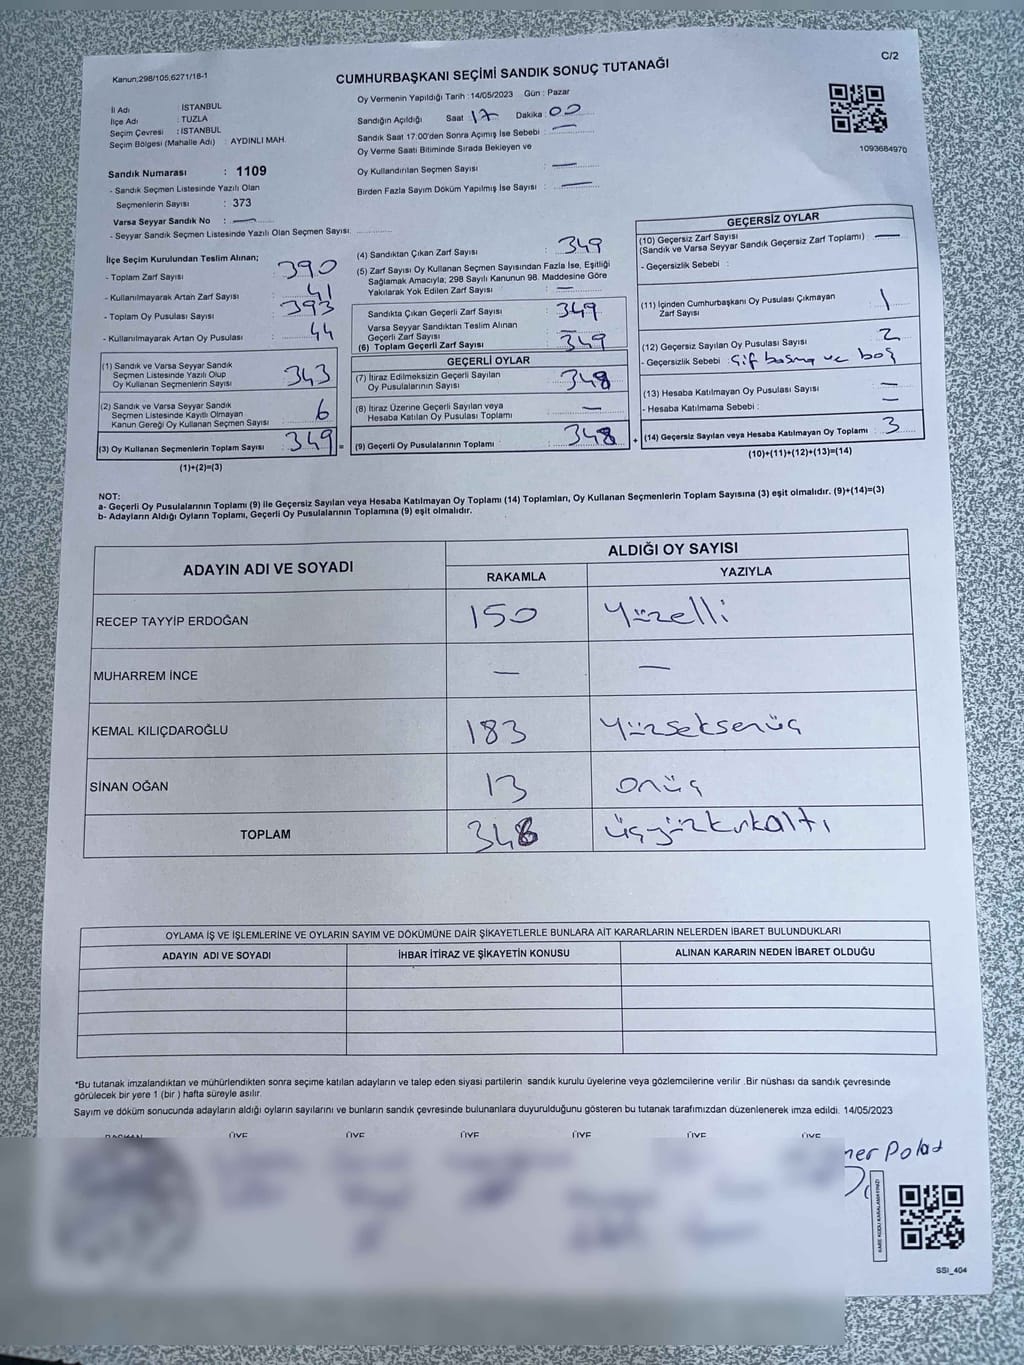 Kanun;298/105,6271/18-1
CUMHURBAŞKANI SEÇİMİ SANDIK SONUÇ TUTANAĞI
C/2
İl Adı : İSTANBUL
İlçe Adı : TUZLA
Seçim Çevresi : İSTANBUL
Seçim Bölgesi (Mahalle Adı) : AYDINLI MAH.
Oy Vermenin Yapıldığı Tarih : 14/05/2023 Gün : Pazar
Sandığın Açıldığı Saat 17 Dakika : 00
Sandık Saat 17:00'den Sonra Açımış İse Sebebi : —
Oy Verme Saati Bitiminde Sırada Bekleyen ve
Oy Kullandırılan Seçmen Sayısı : —
Birden Fazla Sayım Döküm Yapılmış İse Sayısı : —
1093684970
Sandık Numarası : 1109
- Sandık Seçmen Listesinde Yazılı Olan
Seçmenlerin Sayısı : 373
Varsa Seyyar Sandık No : —
- Seyyar Sandık Seçmen Listesinde Yazılı Olan Seçmen Sayısı:
İlçe Seçim Kurulundan Teslim Alınan;
- Toplam Zarf Sayısı 390
- Kullanılmayarak Artan Zarf Sayısı 41
- Toplam Oy Pusulası Sayısı 393
- Kullanılmayarak Artan Oy Pusulası 44
(1) Sandık ve Varsa Seyyar Sandık
Seçmen Listesinde Yazılı Olup
Oy Kullanan Seçmenlerin Sayısı 343
(2) Sandık ve Varsa Seyyar Sandık
Seçmen Listesinde Kayıtlı Olmayan
Kanun Gereği Oy Kullanan Seçmen Sayısı 6
(3) Oy Kullanan Seçmenlerin Toplam Sayısı 349 =
(1)+(2)=(3)
(4) Sandıktan Çıkan Zarf Sayısı : 349
(5) Zarf Sayısı Oy Kullanan Seçmen Sayısından Fazla İse, Eşitliği
Sağlamak Amacıyla; 298 Sayılı Kanunun 98. Maddesine Göre
Yakılarak Yok Edilen Zarf Sayısı : —
Sandıkta Çıkan Geçerli Zarf Sayısı : 349
Varsa Seyyar Sandıktan Teslim Alınan
Geçerli Zarf Sayısı : —
(6) Toplam Geçerli Zarf Sayısı : 349
GEÇERLİ OYLAR
(7) İtiraz Edilmeksizin Geçerli Sayılan
Oy Pusulalarının Sayısı : 348
(8) İtiraz Üzerine Geçerli Sayılan veya
Hesaba Katılan Oy Pusulası Toplamı : —
(9) Geçerli Oy Pusulalarının Toplamı : 348 +
GEÇERSİZ OYLAR
(10) Geçersiz Zarf Sayısı
(Sandık ve Varsa Seyyar Sandık Geçersiz Zarf Toplamı) —
- Geçersizlik Sebebi :
(11) İçinden Cumhurbaşkanı Oy Pusulası Çıkmayan
Zarf Sayısı 1
(12) Geçersiz Sayılan Oy Pusulası Sayısı : 2
- Geçersizlik Sebebi Çift basma ve boş
(13) Hesaba Katılmayan Oy Pusulası Sayısı : —
- Hesaba Katılmama Sebebi : —
(14) Geçersiz Sayılan veya Hesaba Katılmayan Oy Toplamı : 3
(10)+(11)+(12)+(13)=(14)
NOT:
a- Geçerli Oy Pusulalarının Toplamı (9) ile Geçersiz Sayılan veya Hesaba Katılmayan Oy Toplamı (14) Toplamları, Oy Kullanan Seçmenlerin Toplam Sayısına (3) eşit olmalıdır. (9)+(14)=(3)
b- Adayların Aldığı Oyların Toplamı, Geçerli Oy Pusulalarının Toplamına (9) eşit olmalıdır.
ADAYIN ADI VE SOYADI
ALDIĞI OY SAYISI
RAKAMLA YAZIYLA
RECEP TAYYİP ERDOĞAN 150 Yüzelli
MUHARREM İNCE — —
KEMAL KILIÇDAROĞLU 183 Yüzseksenüç
SİNAN OĞAN 13 onüç
TOPLAM 346 üçyüzkırkaltı
OYLAMA İŞ VE İŞLEMLERİNE VE OYLARIN SAYIM VE DÖKÜMÜNE DAİR ŞİKAYETLERLE BUNLARA AİT KARARLARIN NELERDEN İBARET BULUNDUKLARI
ADAYIN ADI VE SOYADI İHBAR İTİRAZ VE ŞİKAYETİN KONUSU ALINAN KARARIN NEDEN İBARET OLDUĞU
*Bu tutanak imzalandıktan ve mühürlendikten sonra seçime katılan adayların ve talep eden siyasi partilerin sandık kurulu üyelerine veya gözlemcilerine verilir .Bir nüshası da sandık çevresinde
görülecek bir yere 1 (bir ) hafta süreyle asılır.
Sayım ve döküm sonucunda adayların aldığı oyların sayılarını ve bunların sandık çevresinde bulunanlara duyurulduğunu gösteren bu tutanak tarafımızdan düzenlenerek imza edildi. 14/05/2023
BAŞKAN ÜYE ÜYE ÜYE ÜYE ÜYE ÜYE
Polat
KARE KODU KARALAMAYINIZ!
SSI_404